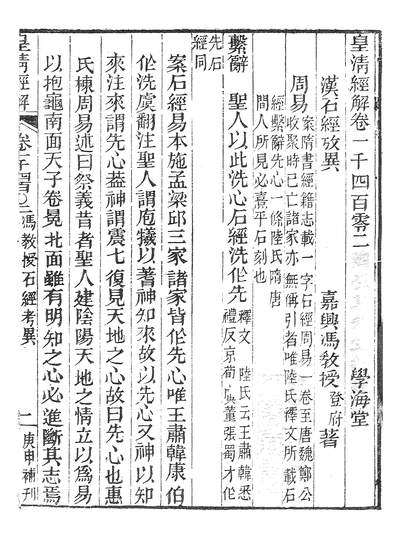 皇清經解卷一千四百零二 學海堂
漢石經攷異 嘉興馮教授登府著
周易 案隋書經籍志載一字石經周易一卷至唐魏鄭公
收聚時已亡諸家亦無偁引者唯陸氏釋文所載石
經繫辭先心一條陸氏隋唐
間人所見必熹平石刻也
繫辭 聖人以此洗心石經洗作先 釋文 陸氏云王肅韓悉
禮反京荀虞董張蜀才作
先石
經同
案石經易本施孟梁邱三家諸家皆作先心唯王肅韓康伯
作洗虞翻注聖人謂庖犧以蓍神知來故以先心又神以知
來注來謂先心葢神謂震七復見天地之心故曰先心也惠
氏棟周易述曰祭義昔者聖人建陰陽天地之情立以爲易
以抱龜南面天子卷冕北面雖有明知之心必進斷其志焉
皇淸經解 卷千四百二 馮教授石經考異 一 庚申補刊